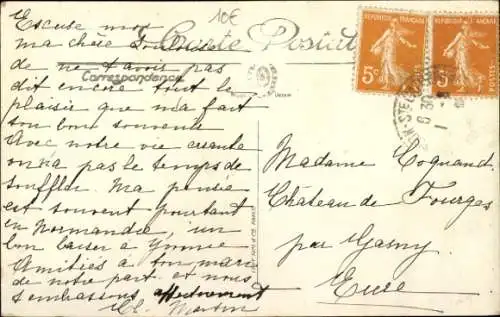 10€
Carte Postale
Correspondance
REPUBLIQUE FRANÇAISE
5c
POSTES
REPUBLIQUE FRANÇAISE
5c
POSTES
Excuse moi
ma chère
de ne t'avoir pas
dit encore tout le
plaisir que m'a fait
ton bon souvenir
Avec notre vie errante
on n'a pas le temps de
souffler. Ma pensée
est souvent pourtant
en Normandie, un
bon baiser à Yvonne
Amitiés à ton mari
de notre part et nous
t'embrassons affectueusement
Cl. Martin
Madame Coquand
Château de Fourges
par Gasny
Eure